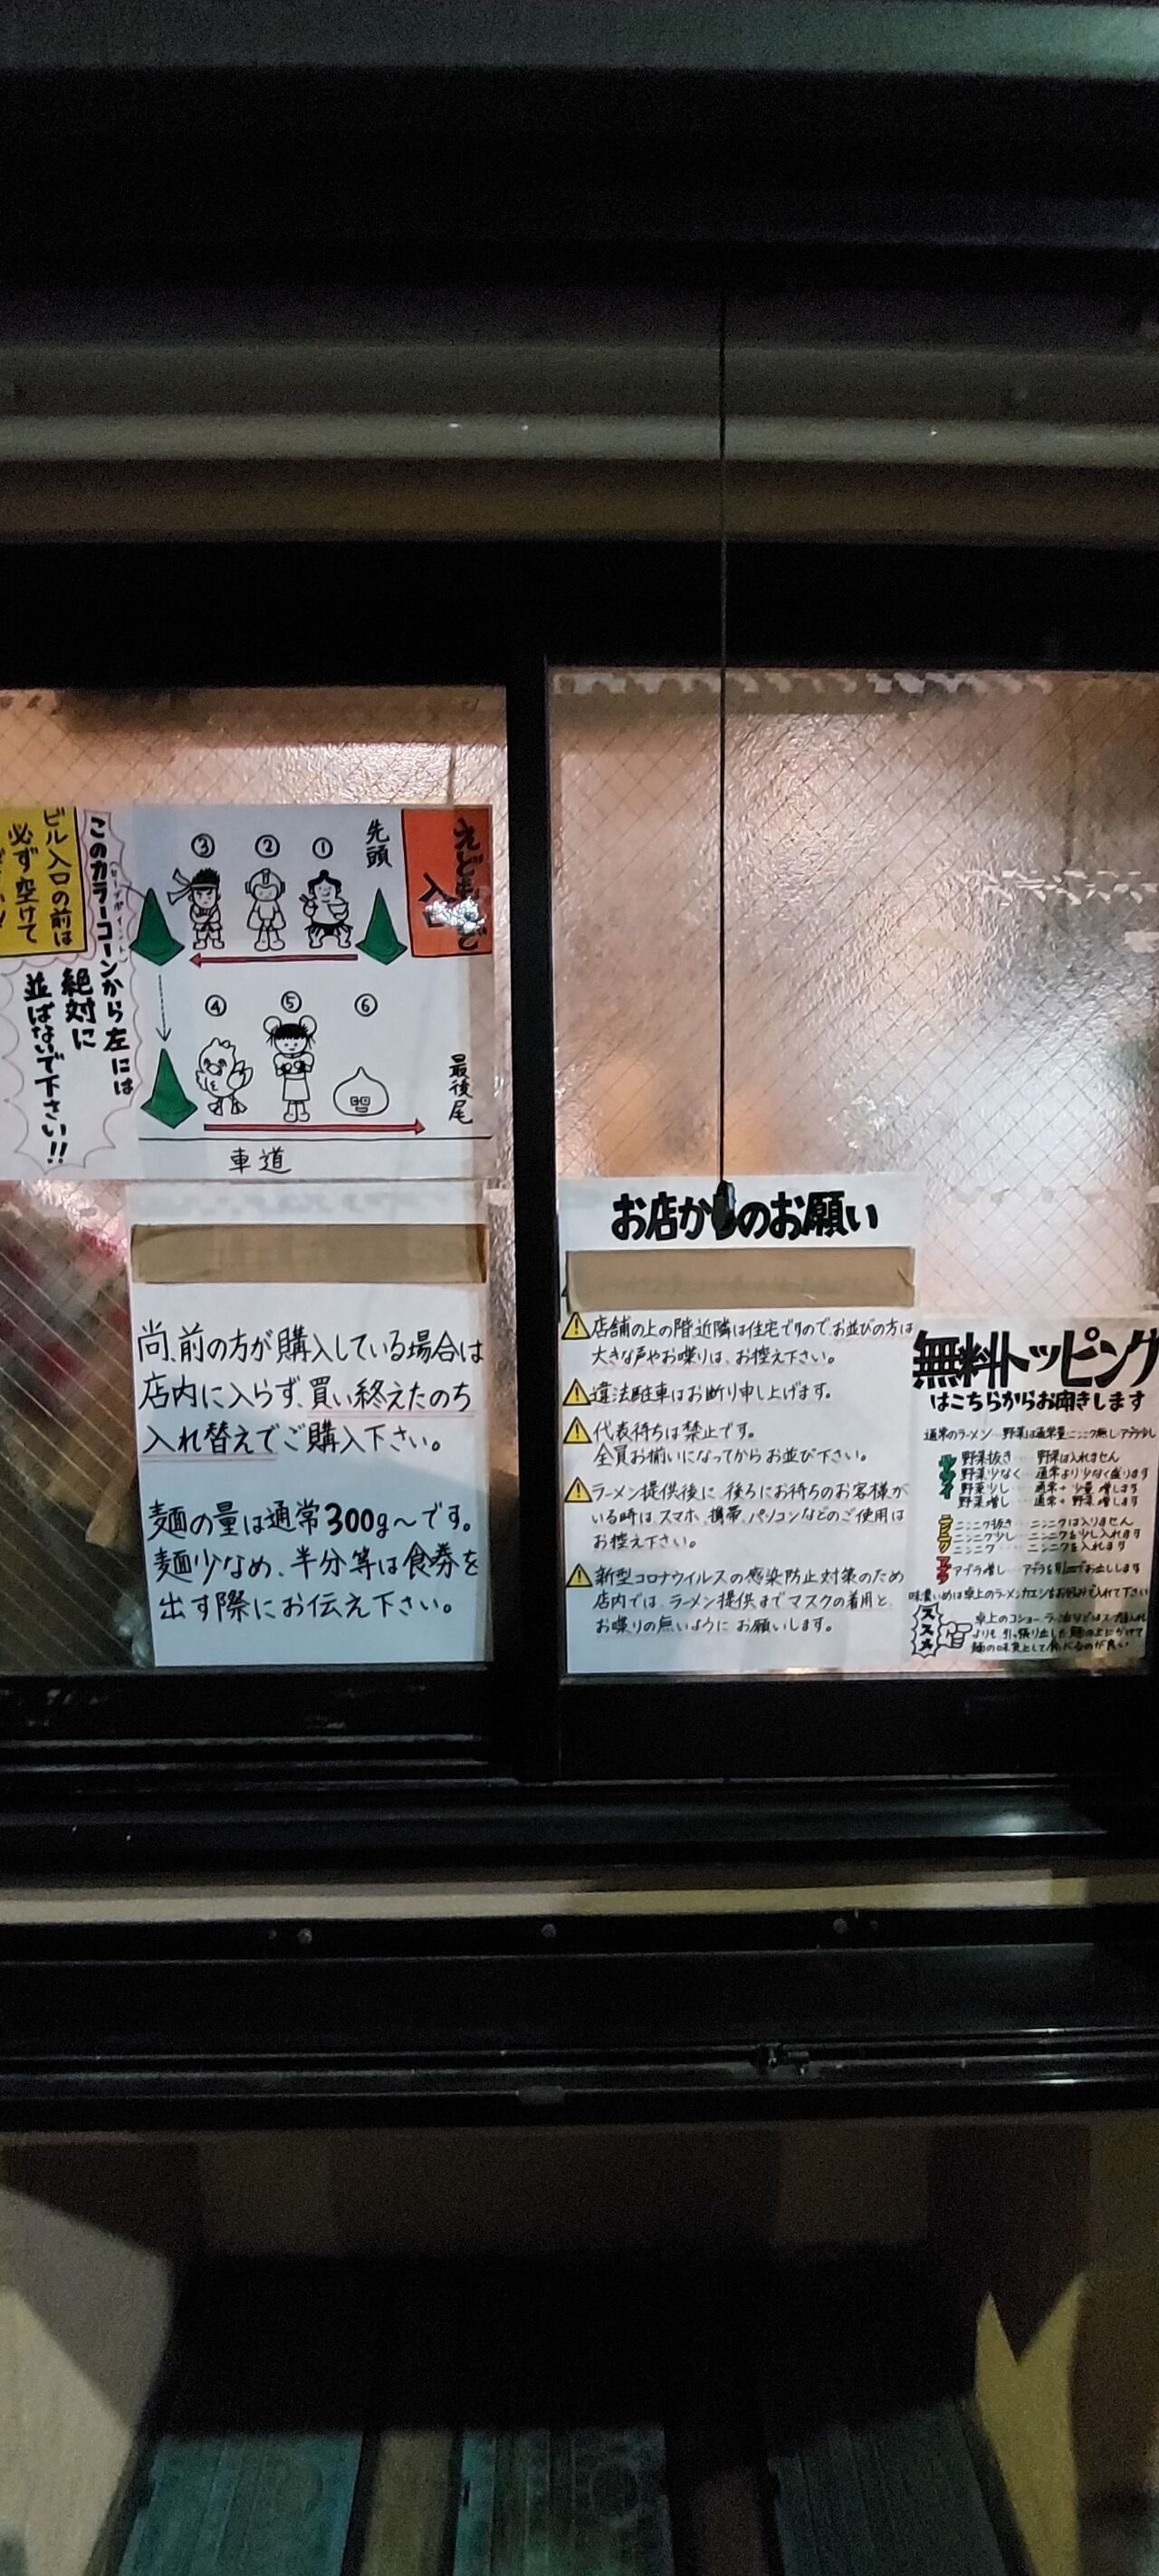 ビル入口の前は
必ず空けて
このカラーコーンから左には
絶対に
並ばないで下さい!!
先頭
①
②
③
④
⑤
⑥
最後尾
車道
入口
尚、前の方が購入している場合は
店内に入らず、買い終えたのち
入れ替えでご購入下さい。
麺の量は通常300g~です。
麺少なめ、半分等は食券を
出す際にお伝え下さい。
お店からのお願い
店舗の上の階、近隣は住宅ですので、お並びの方は
大きな声やお喋りは、お控え下さい。
違法駐車はお断り申し上げます。
代表待ちは禁止です。
全員お揃いになってからお並び下さい。
ラーメン提供後に、後ろにお待ちのお客様が
いる時は、スマホ、携帯、パソコンなどのご使用は
お控え下さい。
新型コロナウイルスの感染防止対策のため
店内では、ラーメン提供までマスクの着用と、
お喋りの無いようにお願いします。
無料トッピング
はこちらからお聞きします
通常のラーメン…野菜は通常量 ニンニク無し アブラ少し
ヤサイ
野菜抜き…野菜は入れません
野菜少なく…通常より少なく盛ります
野菜少し…通常+少量増します
野菜増し…通常+野菜増します
ニンニク
ニンニク抜き…ニンニクは入りません
ニンニク少し…ニンニクを少し入れます
ニンニク…ニンニクを入れます
アブラ
アブラ増し…アブラを別皿でお出しします
味濃いめは卓上のラーメンカエシをお好みで入れて下さい
ススメ
麺の味見として食べるのが良い